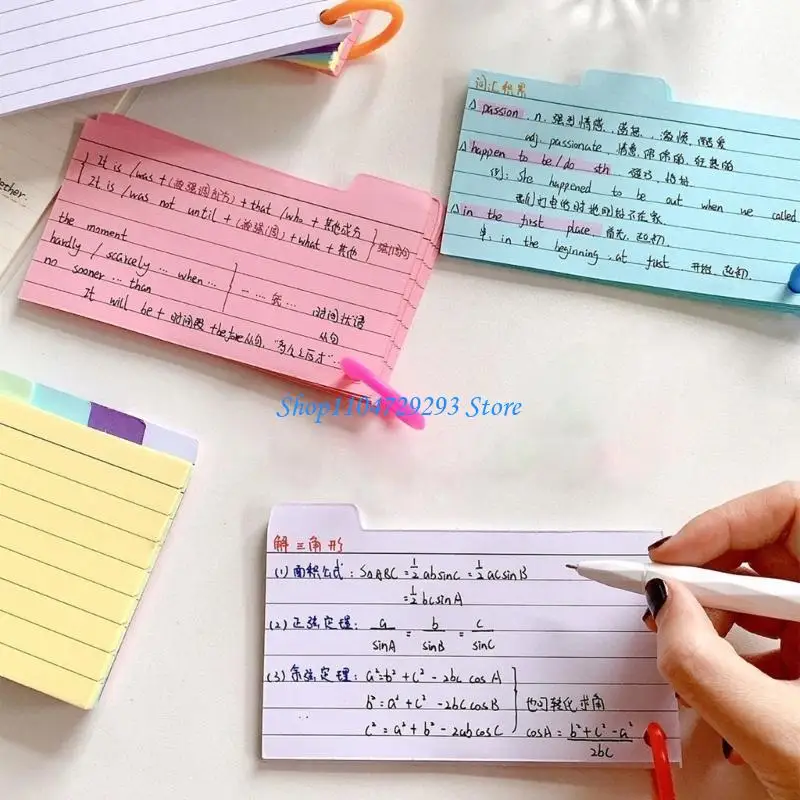 ether.
It is /was + (被强调部分) + that /who + 其他成分
It is /was not until + (被强调) + what + 其他
强调句
the moment
hardly / scarcely ... when ...
no sooner ... than
一 ... 就 ... 时间状语
从句
It will be + 时间段 + before 从句. "多久之后才" ...
词汇积累
△ passion . n. 强烈情感 . 激愤 . 酷爱
adj. passionate 情意 的. 狂热的
△ happen to be/do sth 碰巧 . 恰好
例: She happened to be out when we called
我们打电话时她刚好不在家
△ in the first place 首先. 起初.
in the beginning . at first . 开始. 起初.
Shop1104729293 Store
解三角形
(1) 面积公式: S△ABC = 1/2 absinC = 1/2 acsinB
= 1/2 bcsinA
(2) 正弦定理: a/sinA = b/sinB = c/sinC
(3) 余弦定理: a² = b² + c² - 2bc cosA
b² = a² + c² - 2bc cosB
c² = a² + b² - 2ab cosC
也可转化求角
cosA = (b² + c² - a²)/2bc